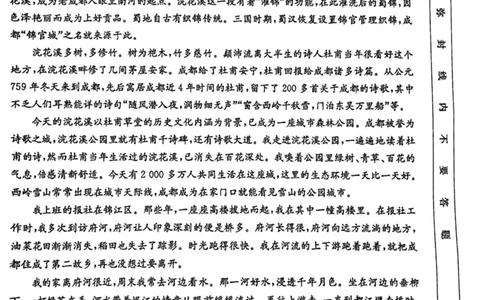 花溪,成为老成都人眼里南河的起点。浣花溪这一段有着"濯锦"的功能,在此濯洗后的蜀锦,因
色泽艳丽而成为上好贡品。蜀地自古有织锦传统。三国时期,蜀汉恢复设置锦官管理织锦,成
都"锦官城"之名就余源于此。
浣花溪多树,多修竹。树为桤木,竹多慈竹。颠沛流离大半生的诗人杜甫当年很看好这个
地方,在浣花溪畔修了几间茅屋安家。成都给了杜甫安宁,杜甫回报给成都诸多诗篇。从公元
759年冬天来到成都,先后寓居成都近4年时间的杜甫,留下了200多首关于成都的诗歌,其中
不乏人们耳熟能详的诗句"随风潜入夜,润物细无声""窗含西岭千秋雪,门泊东吴万里船"等。
今天的浣花溪以杜甫草堂的历史文化内涵为背景,已成为一座城市森林公园。成都被誉为
诗歌之城,浣花溪公园里就有杜甫千诗碑,还有诗歌大道。我走进浣花溪公园,一遍遍地读着杜
甫的诗,然而杜甫当年生活过的浣花溪,已消失在百花深处。我嗅着公园里绿树、青草、百花的
气息,倍感清新舒适。今天有2000多万人共同生活在这座城,这里的生态环境一天比一天好。
西岭雪山常常出现在城市天际线,成都成为在家门口就能看见雪山的公园城市。
我上班的报社在锦江区。那些年,一座座高楼拔地而起,我在其中一幢高楼里。在报社工
作时,我多次到访府河,府河让人印象深刻的便是桥多。府河长得很,府河向远方流淌的地方,
油菜花田渐渐消失,稻田也失去了踪影。时光跑得很快。我在河流的上下游跑着跑着,就把成
都住成了第二故乡,再也没想过要离开。
我的家离府河很近,周末我常去河边看水。那一河好水,浸透千年月色。坐在河边的垂柳
弥
封
线
内
不
要
答
题